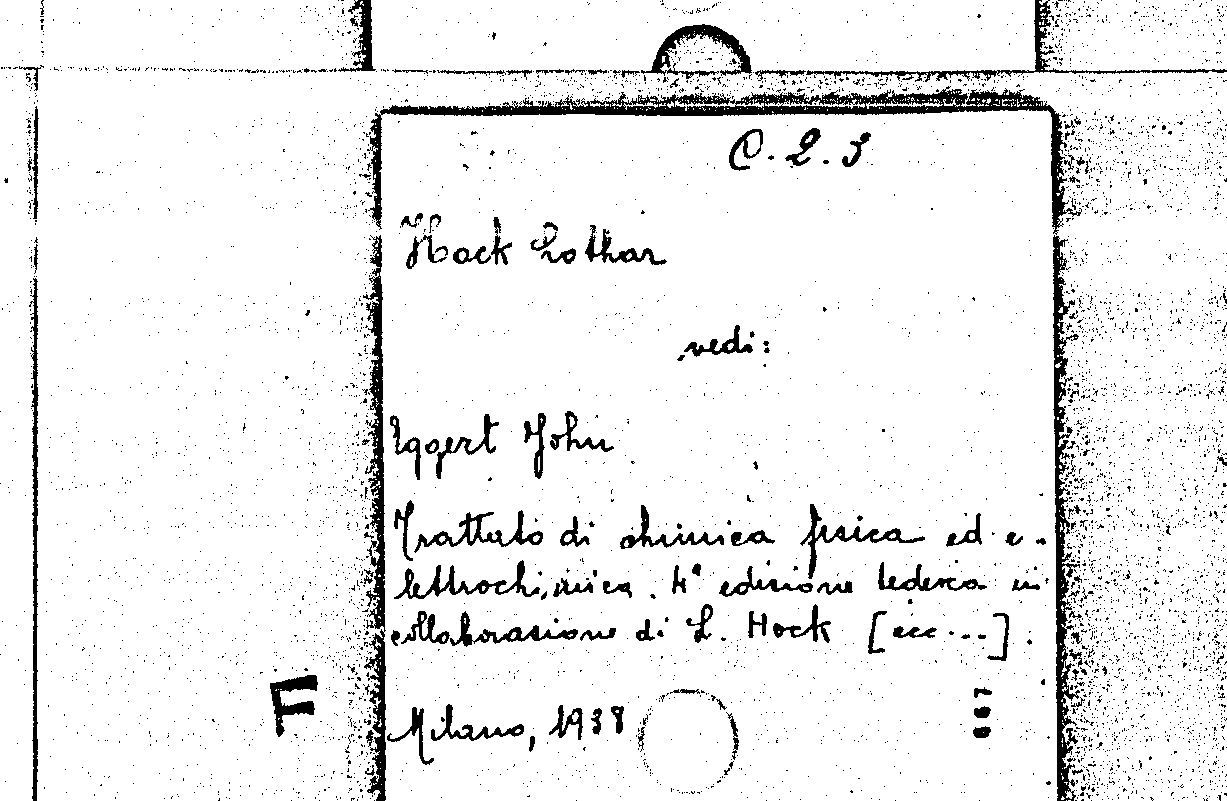 C. 2. 3
Hock Lothar
vedi:
Eggert John
Trattato di chimica fisica ed e-
lettrochimica. 4ª edizione tedesca in
collaborazione di L. Hock [ecc...].
F
Milano, 1938
667